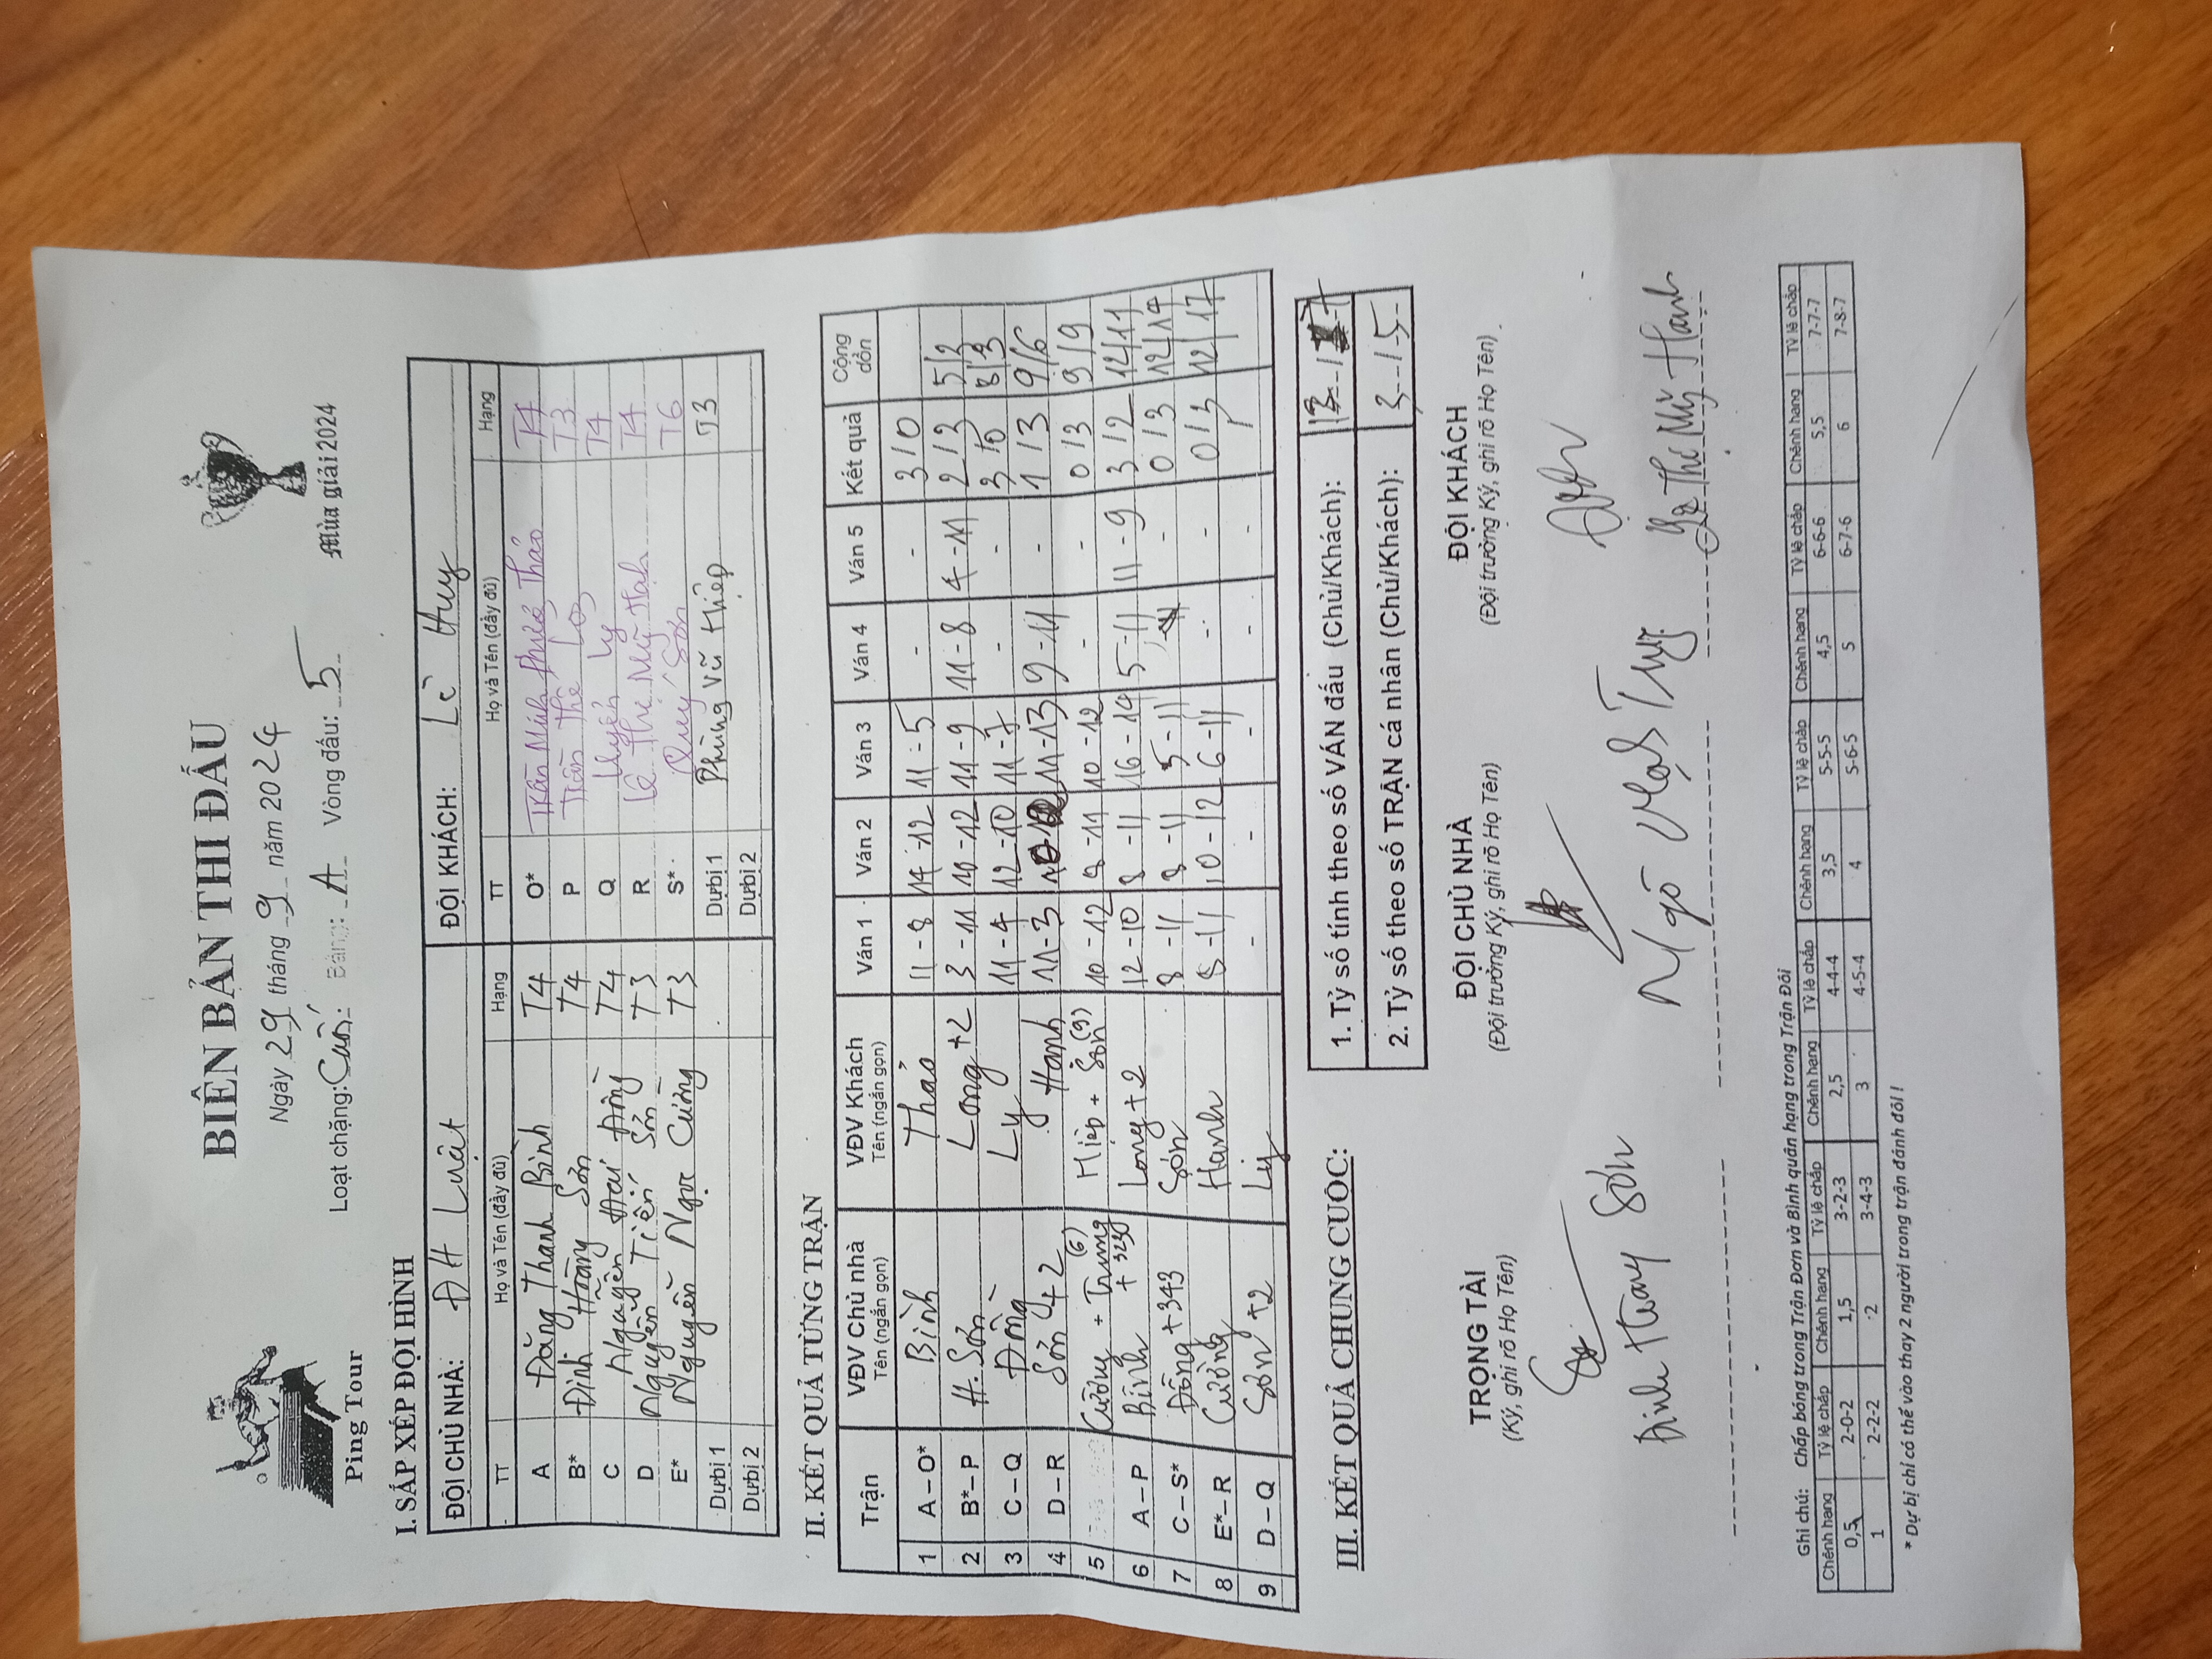 Ping Tour
BIÊN BẢN THI ĐẤU
Ngày 29 tháng 9 năm 2024
Loạt chặng: Cuối Bảng: A Vòng đấu: 5
Mùa giải 2024
I. SẮP XẾP ĐỘI HÌNH
ĐỘI CHỦ NHÀ: ĐH Luật ĐỘI KHÁCH: Lê Huy
TT Họ và Tên (đầy đủ) Hạng TT Họ và Tên (đầy đủ) Hạng
A Đặng Thanh Bình T4 O* Trần Minh Phương Thảo T4
B* Đinh Hoàng Sơn T4 P Trần Thế Long T3
C Nguyễn Đại Đồng T4 Q Uyển Ly T4
D Nguyễn Tiến Sơn T3 R Lê Thị Mỹ Hạnh T4
E* Nguyễn Ngọc Cường T3 S* Quý Sơn T6
Dự bị 1 Dự bị 1 Phùng Vũ Hiệp T3
Dự bị 2 Dự bị 2
II. KẾT QUẢ TỪNG TRẬN
Trận VĐV Chủ nhà Tên (ngắn gọn) VĐV Khách Tên (ngắn gọn) Ván 1 Ván 2 Ván 3 Ván 4 Ván 5 Kết quả Cộng dồn
1 A – O* Bình Thảo 11 - 8 14 - 12 11 - 5 - - 3/0
2 B* – P H. Sơn Long +2 3 - 11 10 - 12 11 - 9 11 - 8 4 - 11 2/3 5/3
3 C – Q Đồng Ly 11 - 4 12 - 10 11 - 7 - - 3/0 8/3
4 D – R Sơn +2 Hạnh 11 - 3 11 - 13 9 - 11 - 1/3 9/6
5 Cường + Trung (6) Hiệp + Sơn (9) 10 - 12 9 - 11 10 - 12 - - 0/3 9/9
6 A – P Bình + 323 Long +2 12 - 10 8 - 11 16 - 14 5 - 11 11 - 9 3/2 12/11
7 C – S* Đồng +343 Sơn 8 - 11 8 - 11 5 - 11 - 0/3 12/14
8 E* – R Cường Hạnh 8 - 11 10 - 12 6 - 11 - - 0/3 12/17
9 D – Q Sơn +2 Ly - - - - -
III. KẾT QUẢ CHUNG CUỘC:
1. Tỷ số tính theo số VÁN đấu (Chủ/Khách):
2. Tỷ số theo số TRẬN cá nhân (Chủ/Khách): 3 / 5
TRỌNG TÀI ĐỘI CHỦ NHÀ ĐỘI KHÁCH
(Ký, ghi rõ Họ Tên) (Đội trưởng Ký, ghi rõ Họ Tên) (Đội trưởng Ký, ghi rõ Họ Tên)
Đinh Hoàng Sơn Ngô Lê Thị Mỹ Hạnh
Ghi chú: Chấp bóng trong Trận Đơn và Bình quân hạng trong Trận Đôi
Chênh hạng Tỷ lệ chấp Chênh hạng Tỷ lệ chấp Chênh hạng Tỷ lệ chấp Chênh hạng Tỷ lệ chấp Chênh hạng Tỷ lệ chấp Chênh hạng Tỷ lệ chấp
0,5 2-0-2 1,5 3-2-3 2,5 4-4-4 3,5 5-5-5 4,5 6-6-6 5,5 7-7-7
1 2-2-2 2 3-4-3 3 4-5-4 4 5-6-5 5 6-7-6 6 7-8-7
* Dự bị chỉ có thể vào thay 2 người trong trận đánh đôi !